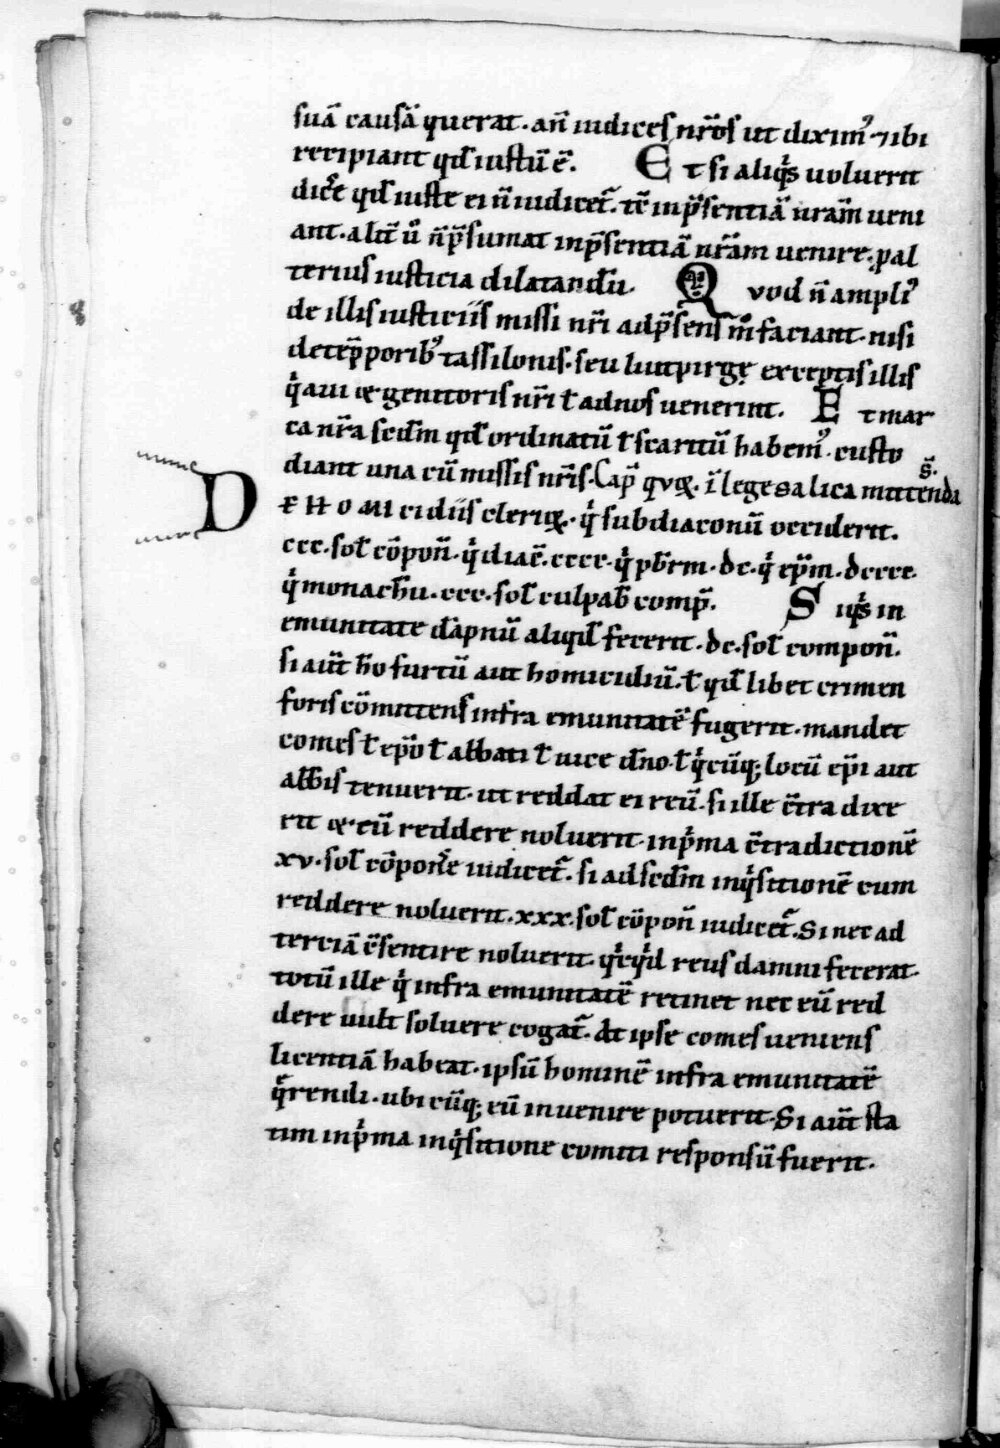 suā causā querat. an̄ iudices nr̄os ut diximꝰ ⁊ ibi
recipiant qd̄ iustū ē. Et si aliqͥs uoluerit
dicͤe qd̄ iuste ei n̄ iudicet᷑. tc̄ in p̄sentiā nr̄am ueni
ant. alit̄ ů n̄ p̄sumat in p̄sentiā nr̄am uenire. ꝑ al
terius iusticia dilatandū. Quod n̄ ampliꝰ
de illis iusticiis missi nr̄i ad p̄sens m̊ faciant. nisi
de tēꝑporibꝰ tassilonis. seu liutpirgę exceptis illis
qͥ aui & genitoris nr̄i ł ad nos uenerint. Et mar
ca nr̄a scd̄m qd̄ ordinatū ł scaritū habemꝰ. custo
diant una cū missis nr̄is. Cap̄ quę. ī lege salica mittenda s̄.
DE HOMIcidiis clericꝝ. qͥ subdiaconū occiderit.
ccc. soł cōpon̄. qͥ diac̄. cccc. qͥ pb̄rm. dc. qͥ ep̄m. dcccc.
qͥ monach̄u. ccc. soł culpab̄ comp̄. Siqͥs in
emunitate dāpnū aliqd̄ fecerit. dc. soł compon̄.
si aut̄ h̄o furtū aut homicidiū. ł qd̄ libet crimen
foris cōmittens infra emunitatē fugerit. mandet
comes ł ep̄o ł abbati ł uice dn̄o. ł qͥcūq; locū ep̄i aut
abb̄is tenuerit. ut reddat ei reū. si ille c̄tra dixe
rit & eū reddere noluerit. in pͥma c̄tradictionē
xv. soł cōponͤe iudicet᷑. si ad scd̄m inqͥsitionē eum
reddere noluerit. xxx. soł cōpon̄ iudicet᷑. Si nec ad
terciā c̄sentire noluerit. qͥcqͥd reus damni fecerat.
totū ille qͥ infra emunitatē retinet nec eū red
dere uult soluere cogat᷑. & ipse comes ueniens
licentiā habeat. ipsū hominē infra emunitatē
q̄rendi. ubi cūq; eū inuenire potuerit. Si aut̄ sta
tim in pͥma inqͥsitione comiti responsū fuerit.